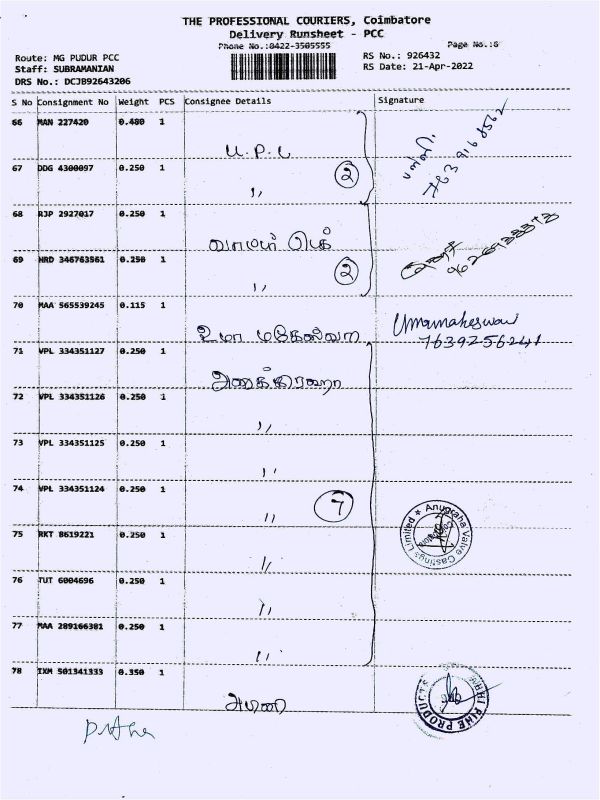 THE PROFESSIONAL COURIERS, Coimbatore
Delivery Runsheet - PCC
Phone No.:0422-3505555
Page No.:6
Route: MG PUDUR PCC
Staff: SUBRAMANIAN
DRS No.: DCJB92643206
RS No.: 926432
RS Date: 21-Apr-2022
S No Consignment No Weight PCS Consignee Details Signature
66 MAN 227420 0.480 1
U.P.L
67 DDG 4300097 0.250 1 2
,,
68 RJP 2927017 0.250 1
69 NRD 346763561 0.250 1 2
,,
70 MAA 565539245 0.115 1
உமா மகேஸ்வரி Umamaheswari
7639256241
71 VPL 334351127 0.250 1
72 VPL 334351126 0.250 1
,,
73 VPL 334351125 0.250 1
,,
74 VPL 334351124 0.250 1 7
,,
Anugraha Valve Castings Limited
75 RKT 8619221 0.250 1
,,
76 TUT 6004696 0.250 1
,,
77 MAA 289166381 0.250 1
,,
78 IXM 501341333 0.350 1
FINE PRODUCTS